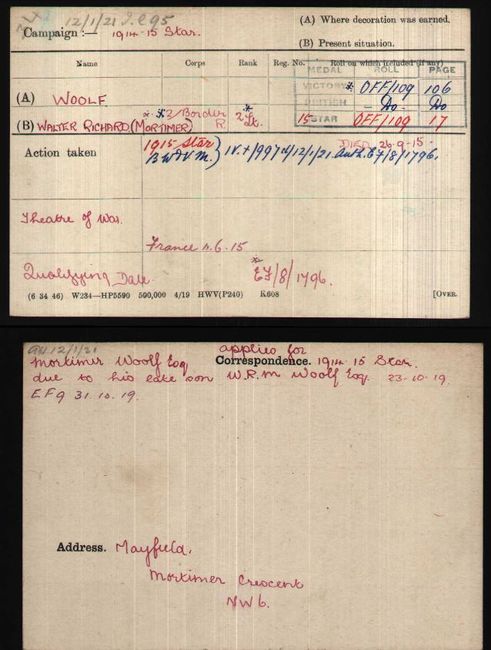 12/1/21 I.C 95
(A) Where decoration was earned.
Campaign :— 1914-15 Star.
(B) Present situation.
Name Corps Rank Reg. No. Roll on which included (if any)
MEDAL ROLL PAGE
VICTORY * OFF/109 106
(A) WOOLF
BRITISH - Do - Do
(B) WALTER RICHARD (MORTIMER) 2/Border R 2/Lt. 15 STAR OFF/109 17
DIED 26-9-15.
Action taken 1915 Star
B W & V M. } IV+/997 d/12/1/21. Auth. EF/8/1796.
Theatre of War.
France 11.6.15
Qualifying Date * EF/8/1796.
(6 34 46) W234—HP5590 500,000 4/19 HWV(P240) K608 [OVER.
12/1/21
Mortimer Woolf Esq applies for
Correspondence. 1914-15 Star.
due to his late son W.R.M Woolf Esq. 23-10-19.
EF9 31.10.19.
Address. Mayfield.
Mortimer Crescent
NW6.